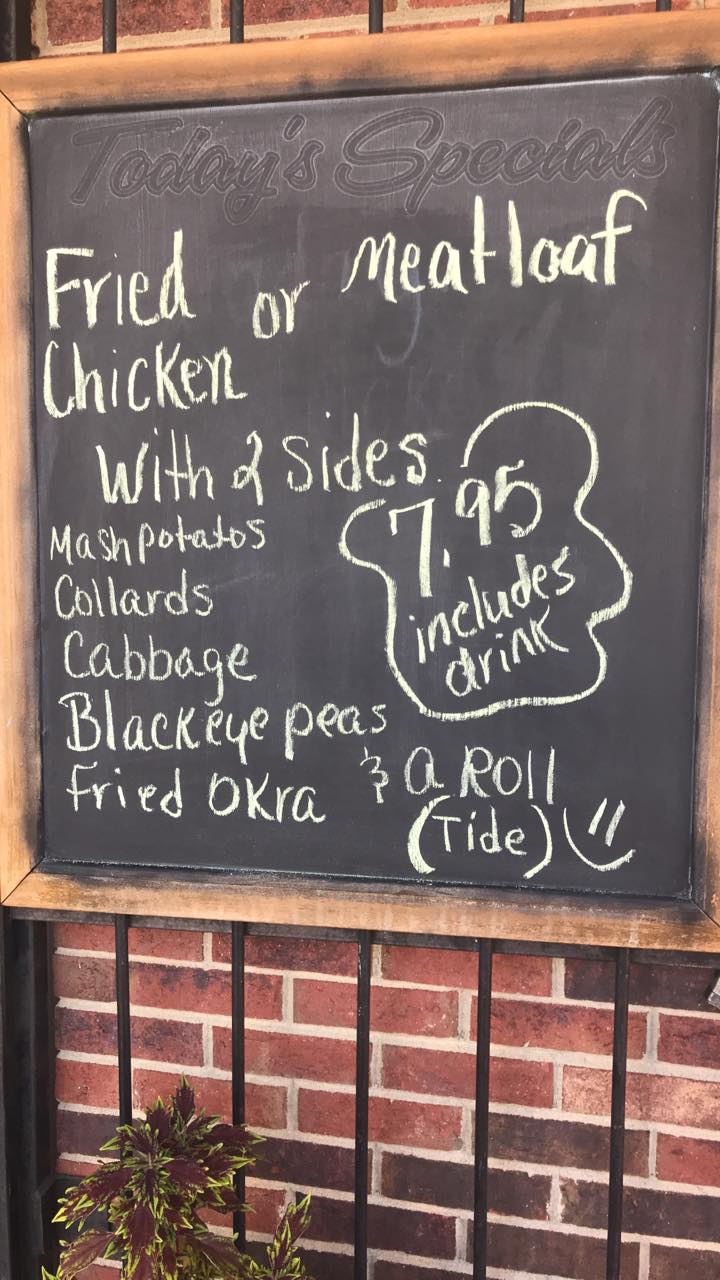 Today's Specials
Fried or Meatloaf
Chicken
With 2 Sides
7.95
includes
drink
Mashpotatos
Collards
Cabbage
Blackeye peas
Fried Okra
& a Roll
(Tide)